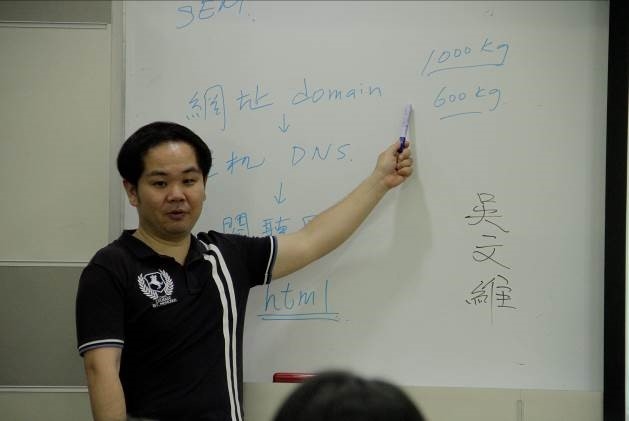 SEM
網址 domain
↓
机 DNS.
↓
html
1000 kg
600 kg
吳文維